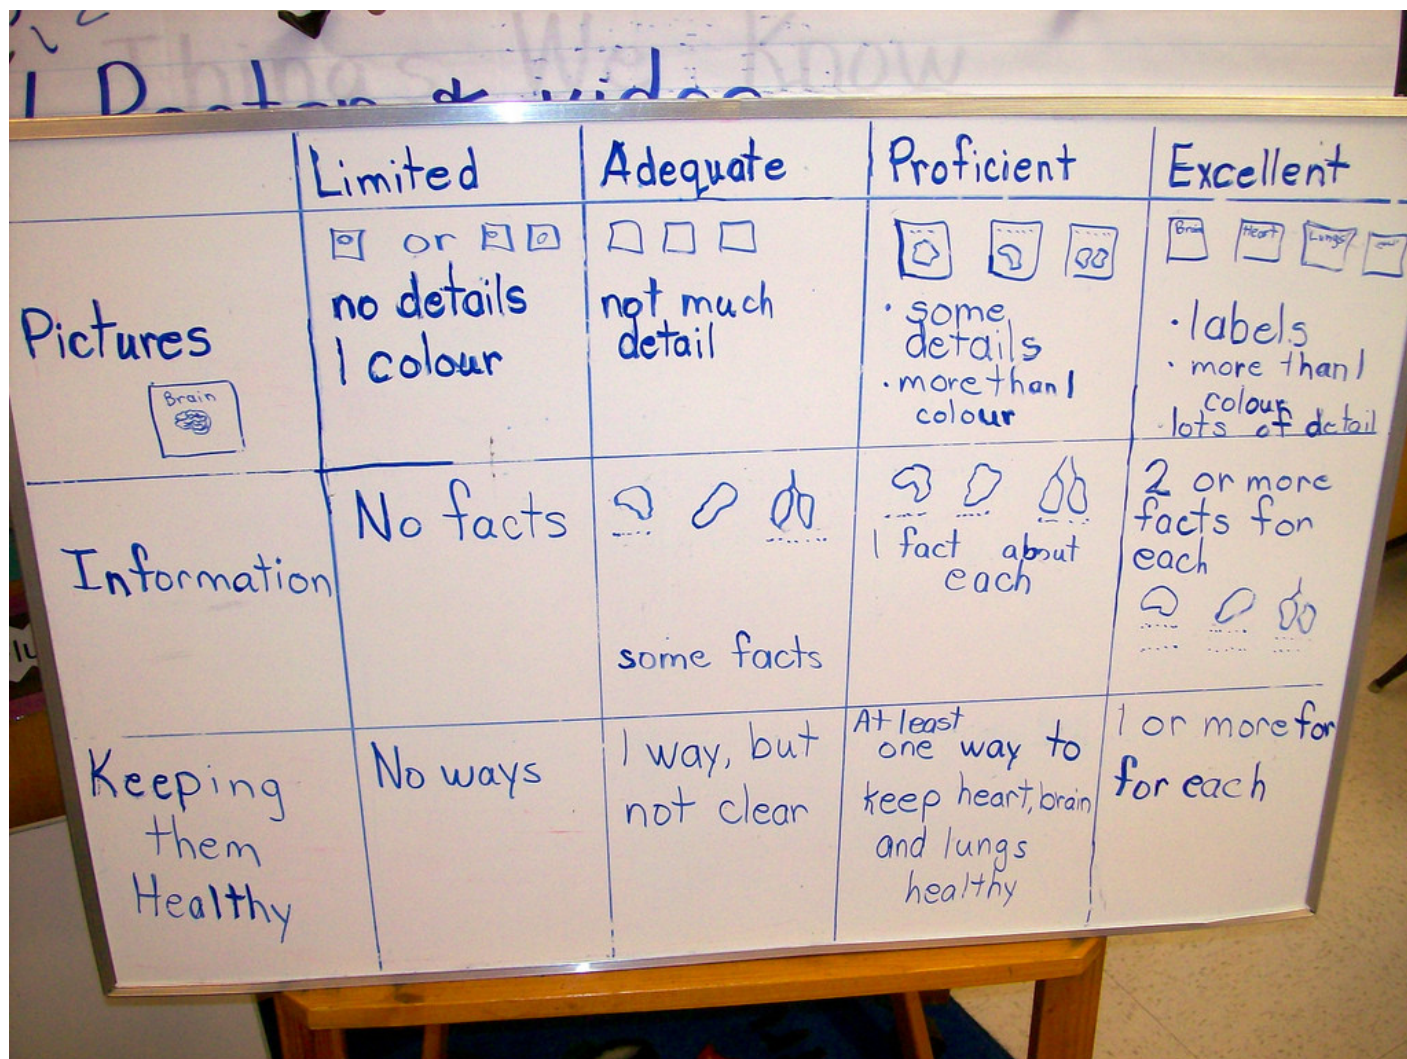 Things We Know
Limited
Adequate
Proficient
Excellent
Pictures
Brain
or
no details
1 colour
not much
detail
· some
details
· more than 1
colour
Brain
Heart
Lungs
· labels
· more than 1
colour
· lots of detail
Information
No facts
some facts
1 fact about
each
2 or more
facts for
each
Keeping
them
Healthy
No ways
1 way, but
not clear
At least
one way to
keep heart, brain
and lungs
healthy
1 or more for
for each